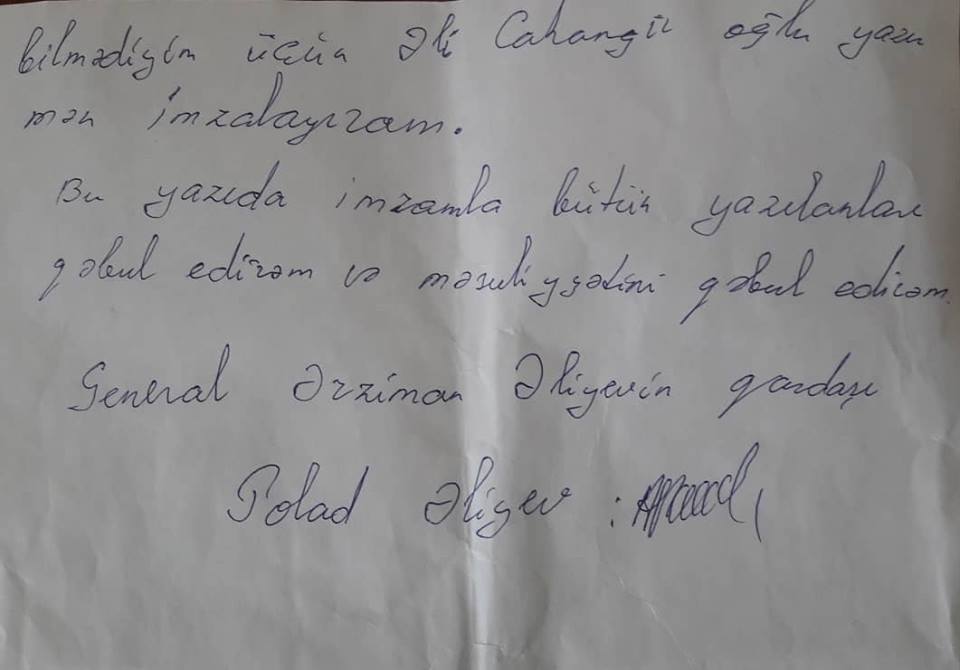 bilmədiyim üçün Əli Cahangir oğlu yazır
mən imzalayıram.
Bu yazıda imzamla bütün yazılanları
qəbul edirəm və məsuliyyətini qəbul edirəm.
General Ərziman Əliyevin qardaşı
Polad Əliyev :